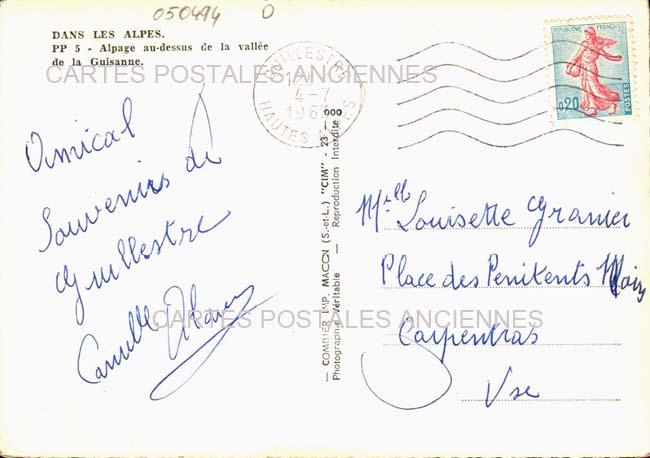 050494 D
DANS LES ALPES.
PP 5 - Alpage au-dessus de la vallée
de la Guisanne.
CARTES POSTALES ANCIENNES
GUILLESTRE
4-7
HAUTES ALPES
REPUBLIQUE FRANÇAISE
0,20
POSTES
Amical
Souvenirs de
Guillestre
Camille
CARTES POSTALES ANCIENNES
— COMBIER IMP. MACON (S.-et-L.) "CIM" - 23
Photographie véritable - Reproduction Interdite
Mlle Louisette Granier
Place des Penitents Noirs
Carpentras
Vse